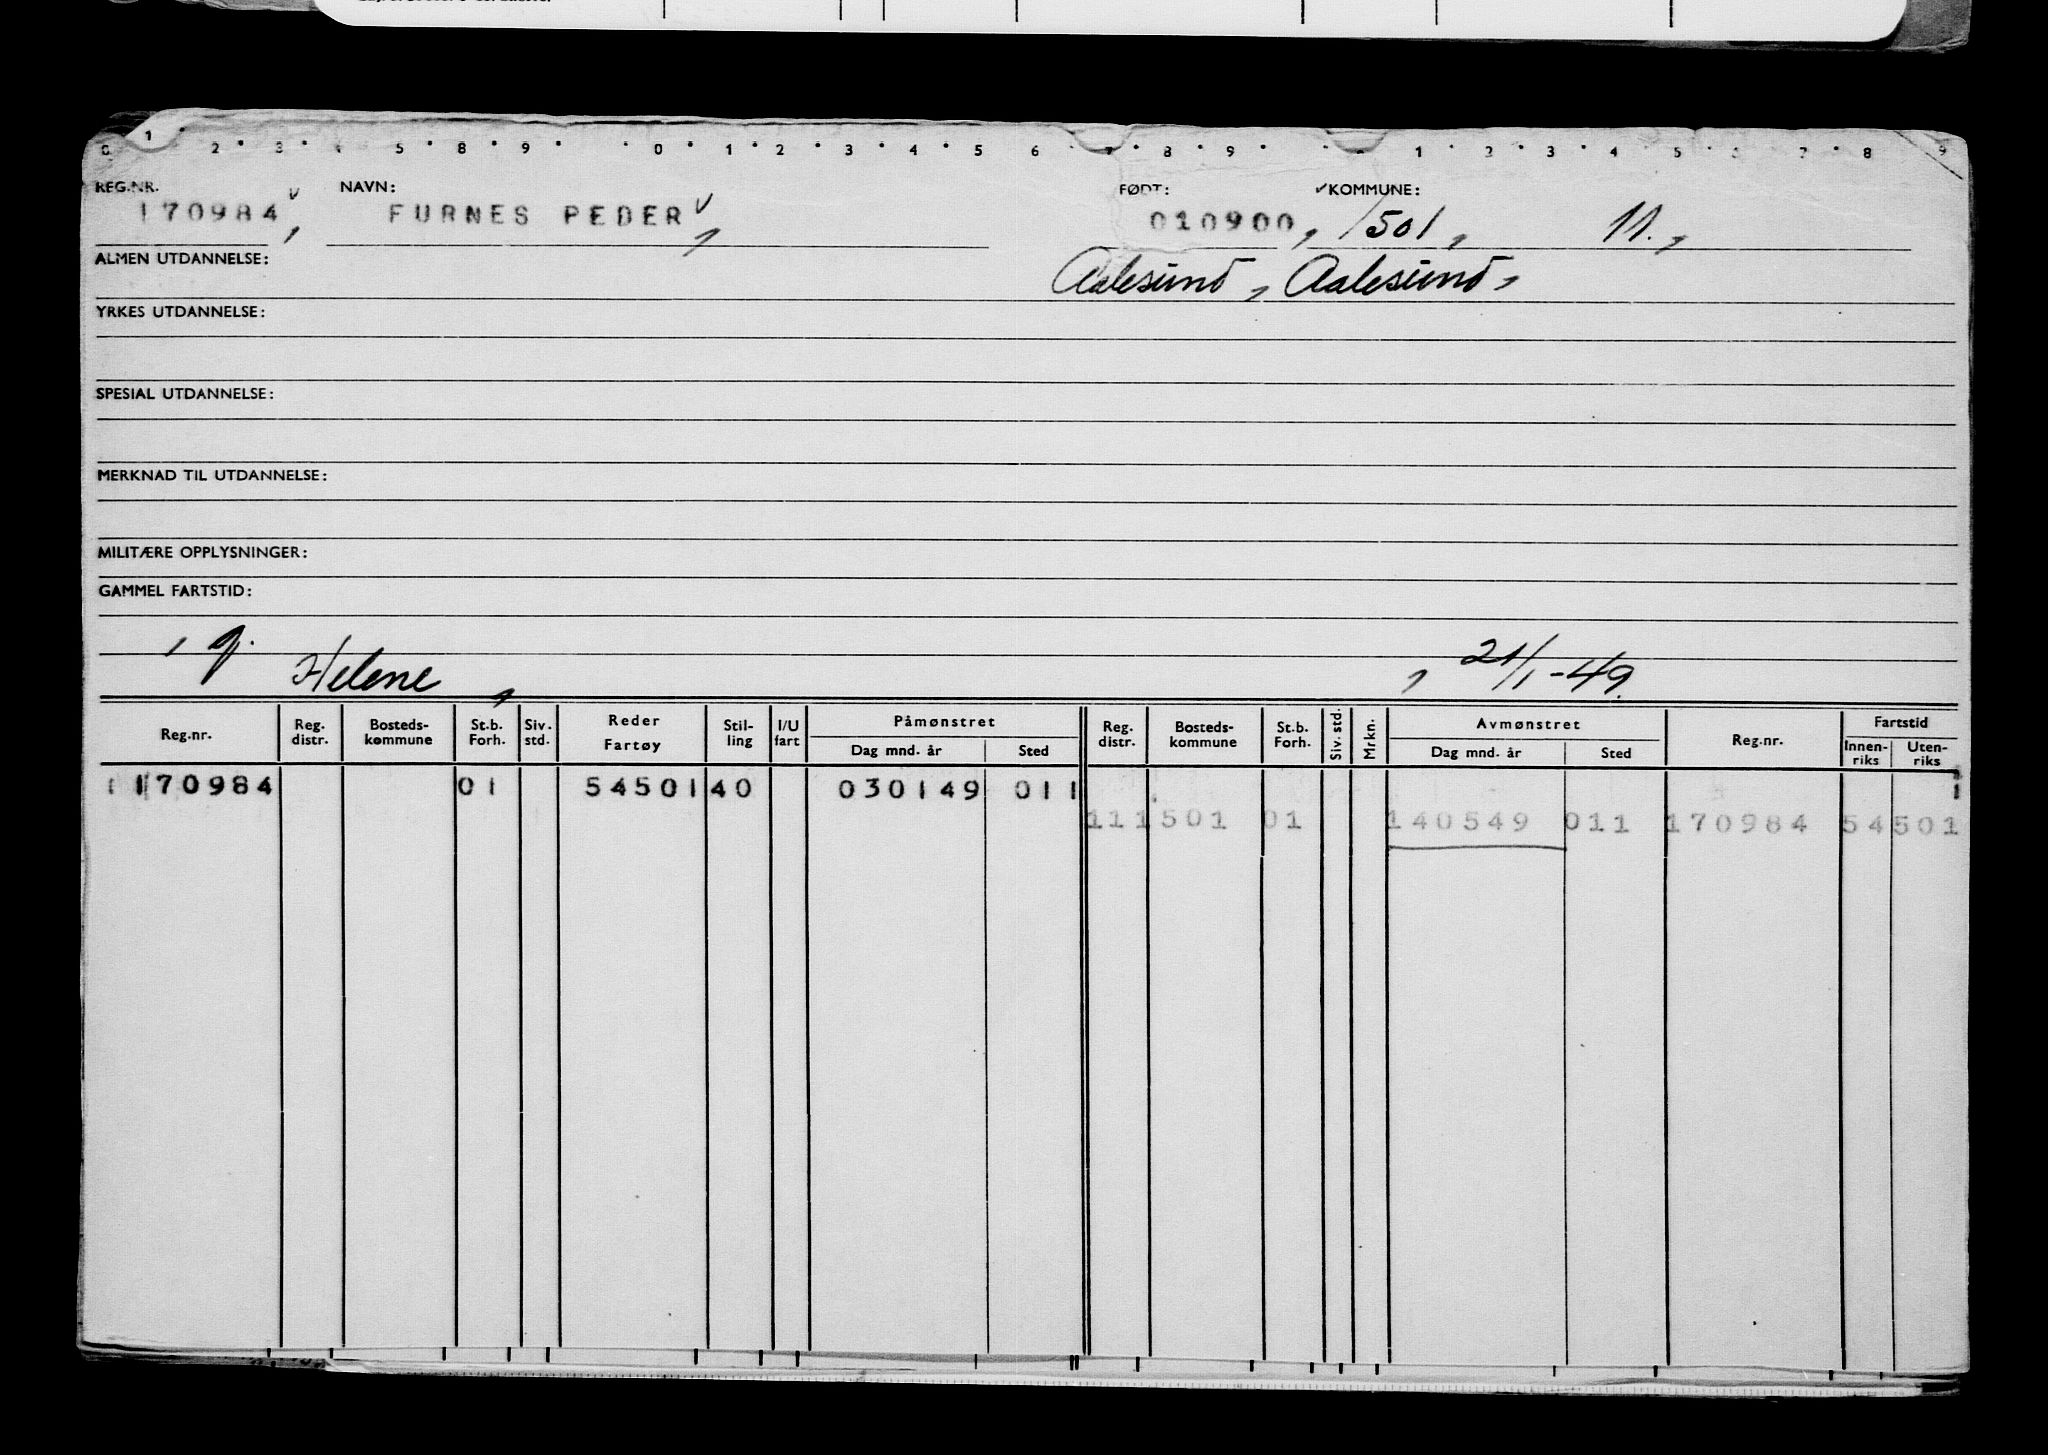 REG.NR. NAVN: FØDT: ✓KOMMUNE:
170984, FURNES PEDER, 010900, 1501, 11.,
ALMEN UTDANNELSE: Aalesund, Aalesund,
YRKES UTDANNELSE:
SPESIAL UTDANNELSE:
MERKNAD TIL UTDANNELSE:
MILITÆRE OPPLYSNINGER:
GAMMEL FARTSTID:
, g. Helene, , 21/1-49.
Reg.nr. Reg. distr. Bosteds-kommune St.b. Forh. Siv. std. Reder Fartøy Stil-ling I/U fart Påmønstret Dag mnd. år Sted Reg. distr. Bosteds-kommune St.b. Forh. Siv. std. Mrkn. Avmønstret Dag mnd. år Sted Reg.nr. Fartstid Innen-riks Uten-riks
170984 01 54501 40 030149 011
111 501 01 140549 011 170984 54 501